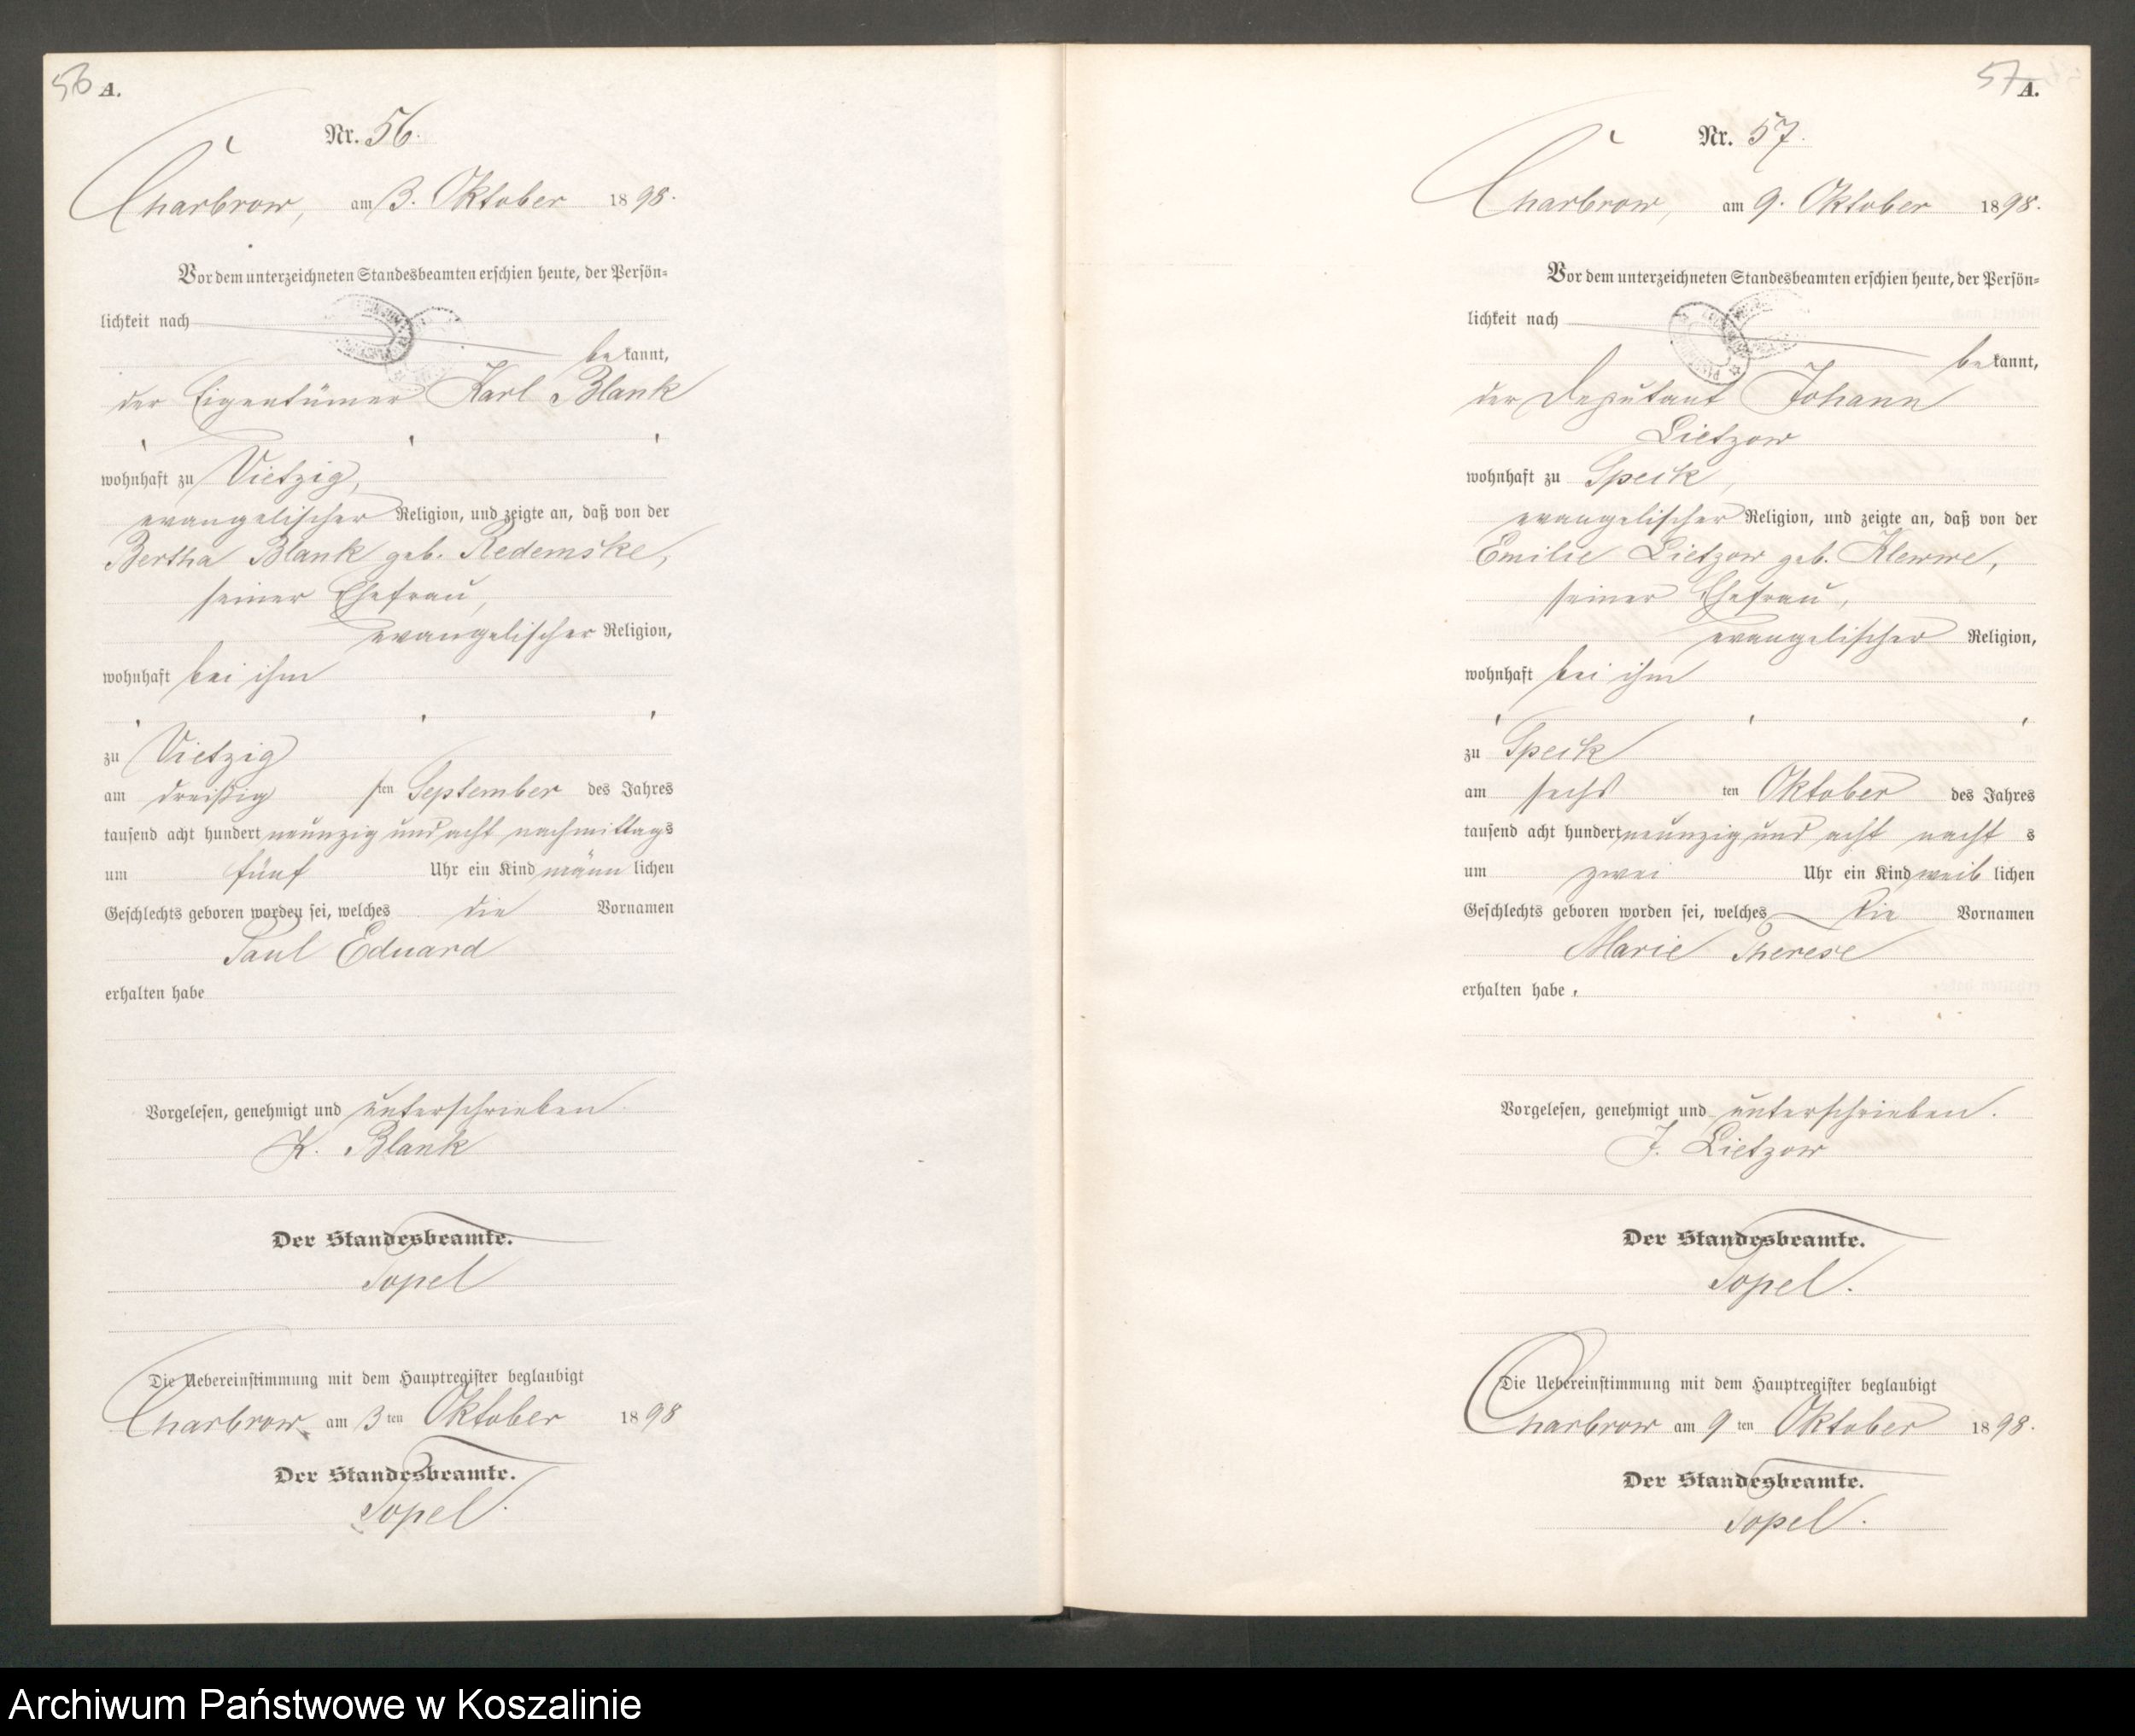 56 A.
Nr. 56.
Charbrow, am 3. Oktober 1898.
Vor dem unterzeichneten Standesbeamten erschien heute, der Persön-
lichkeit nach
bekannt,
der Eigentümer Karl Blank
wohnhaft zu Vietzig,
evangelischer Religion, und zeigte an, daß von der
Bertha Blank geb. Redemske,
seiner Ehefrau,
evangelischer Religion,
wohnhaft bei ihm
zu Vietzig
am dreißigsten September des Jahres
tausend acht hundert neunzig und acht nachmittags
um fünf Uhr ein Kind männlichen
Geschlechts geboren worden sei, welches die Vornamen
Paul Eduard
erhalten habe
Vorgelesen, genehmigt und unterschrieben.
K. Blank
Der Standesbeamte.
Topel
Die Uebereinstimmung mit dem Hauptregister beglaubigt
Charbrow am 3ten Oktober 1898
Der Standesbeamte.
Topel.
57 A.
Nr. 57.
Charbrow, am 9. Oktober 1898.
Vor dem unterzeichneten Standesbeamten erschien heute, der Persön-
lichkeit nach
bekannt,
der Deputant Johann
Lietzow
wohnhaft zu Speck,
evangelischer Religion, und zeigte an, daß von der
Emilie Lietzow geb. Klewwe,
seiner Ehefrau,
evangelischer Religion,
wohnhaft bei ihm
zu Speck
am sechsten Oktober des Jahres
tausend acht hundert neunzig und acht nachts
um zwei Uhr ein Kind weiblichen
Geschlechts geboren worden sei, welches die Vornamen
Marie Therese
erhalten habe.
Vorgelesen, genehmigt und unterschrieben.
J. Lietzow
Der Standesbeamte.
Topel.
Die Uebereinstimmung mit dem Hauptregister beglaubigt
Charbrow am 9ten Oktober 1898.
Der Standesbeamte.
Topel.
Archiwum Państwowe w Koszalinie